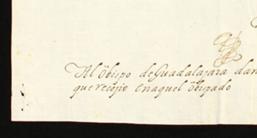 Al Obispo de Guadalajara dan
que recojio en aquel Obispado